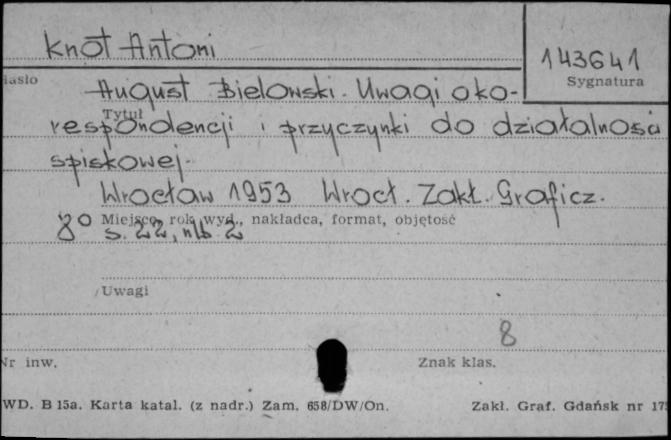 Knot Antoni
143641
Sygnatura
iasło
August Bielowski. Uwagi o ko-
Tytuł
respondencji i przyczynki do działalności
spiskowej.
Wrocław 1953 Wrocł. Zakł. Graficz.
Miejsce, rok wyd., nakładca, format, objętość
8° s. 22, nlb 2
Uwagi
8
Nr inw.
Znak klas.
WD. B 15a. Karta katal. (z nadr.) Zam. 658/DW/On.
Zakł. Graf. Gdańsk nr 17